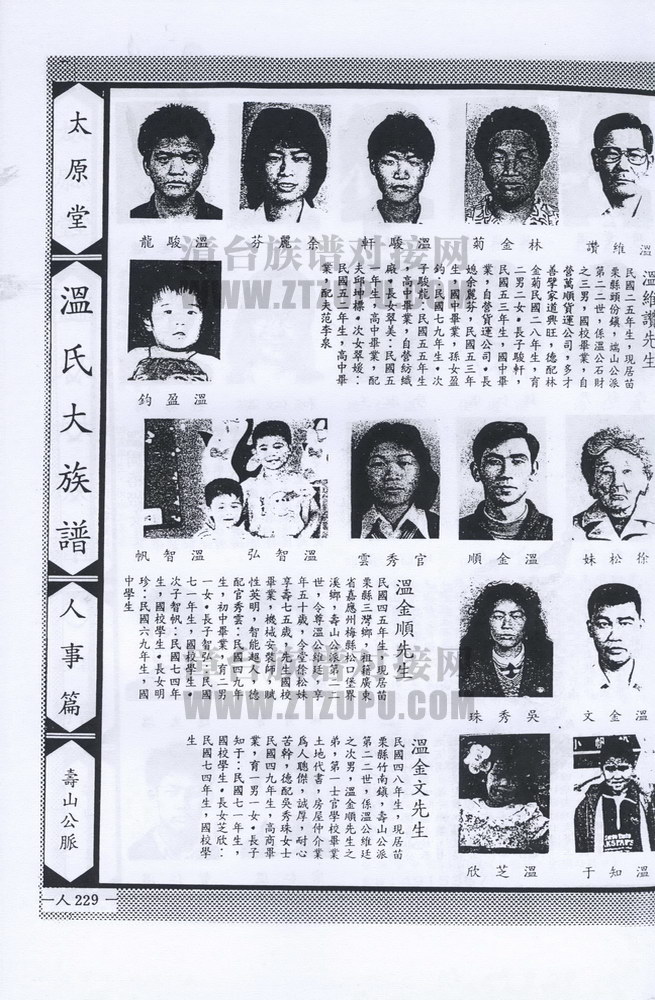 太原堂
溫氏大族譜
人事篇
壽山公脈
人 229
龍駿溫
芬麗余
軒駿溫
菊金林
讚維溫
鈞盈溫
溫維讚先生
民國二五年生，現居苗
栗縣頭份鎮，壽山公派
第二二世，係溫公石財
之三男，國校畢業，自
營萬順貨運公司，多才
善擘家道興旺，德配林
金菊民國二八年生，育
二男二女。長子駿軒，
民國五三年生，國中畢
業，自營貨運公司。長
媳余麗芬，民國五三年
生，國中畢業，孫女盈
鈞：民國七九年生。次
子駿龍：民國五五年生
，高中畢業，自營紡織
廠。長女翠美：民國五
一年生，高中畢業，配
夫邱坤標。次女翠媛：
民國五二年生，高中畢
業，配夫范李泉
帆智溫
弘智溫
雲秀官
順金溫
妹松徐
溫金順先生
民國四五年生，現居苗
栗縣三灣鄉，祖籍廣東
省嘉應州梅縣松口堡界
溪鄉，壽山公派第二二
世，令尊溫公維廷，享
年五十歲，令堂徐松妹
享壽七五歲，先生國校
畢業，機械安裝師，賦
性英明，智能超人，德
配官秀雲：民國四九年
生，初中畢業，育二男
一女。長子智弘：民國
七一年生，國校學生。
次子智帆：民國七四年
生，國校學生。長女明
珍：民國六九年生，國
中學生
珠秀吳
文金溫
溫金文先生
民國四八年生，現居苗
栗縣竹南鎮，壽山公派
第二二世，係溫公維廷
之次男，溫金順先生之
弟，第一士官學校畢業
，土地代書，房屋仲介業
，為人聰傑，誠厚，耐心
苦幹，德配吳秀珠女士
民國四九年生，高商畢
業，育一男一女。長子
知于：民國七一年生，
國校學生。長女芝欣：
民國七四年生，國校學
生
欣芝溫
于知溫
清台族谱对接网
WWW.ZTZUPU.COM
清台族谱对接网
WWW.ZTZUPU.COM